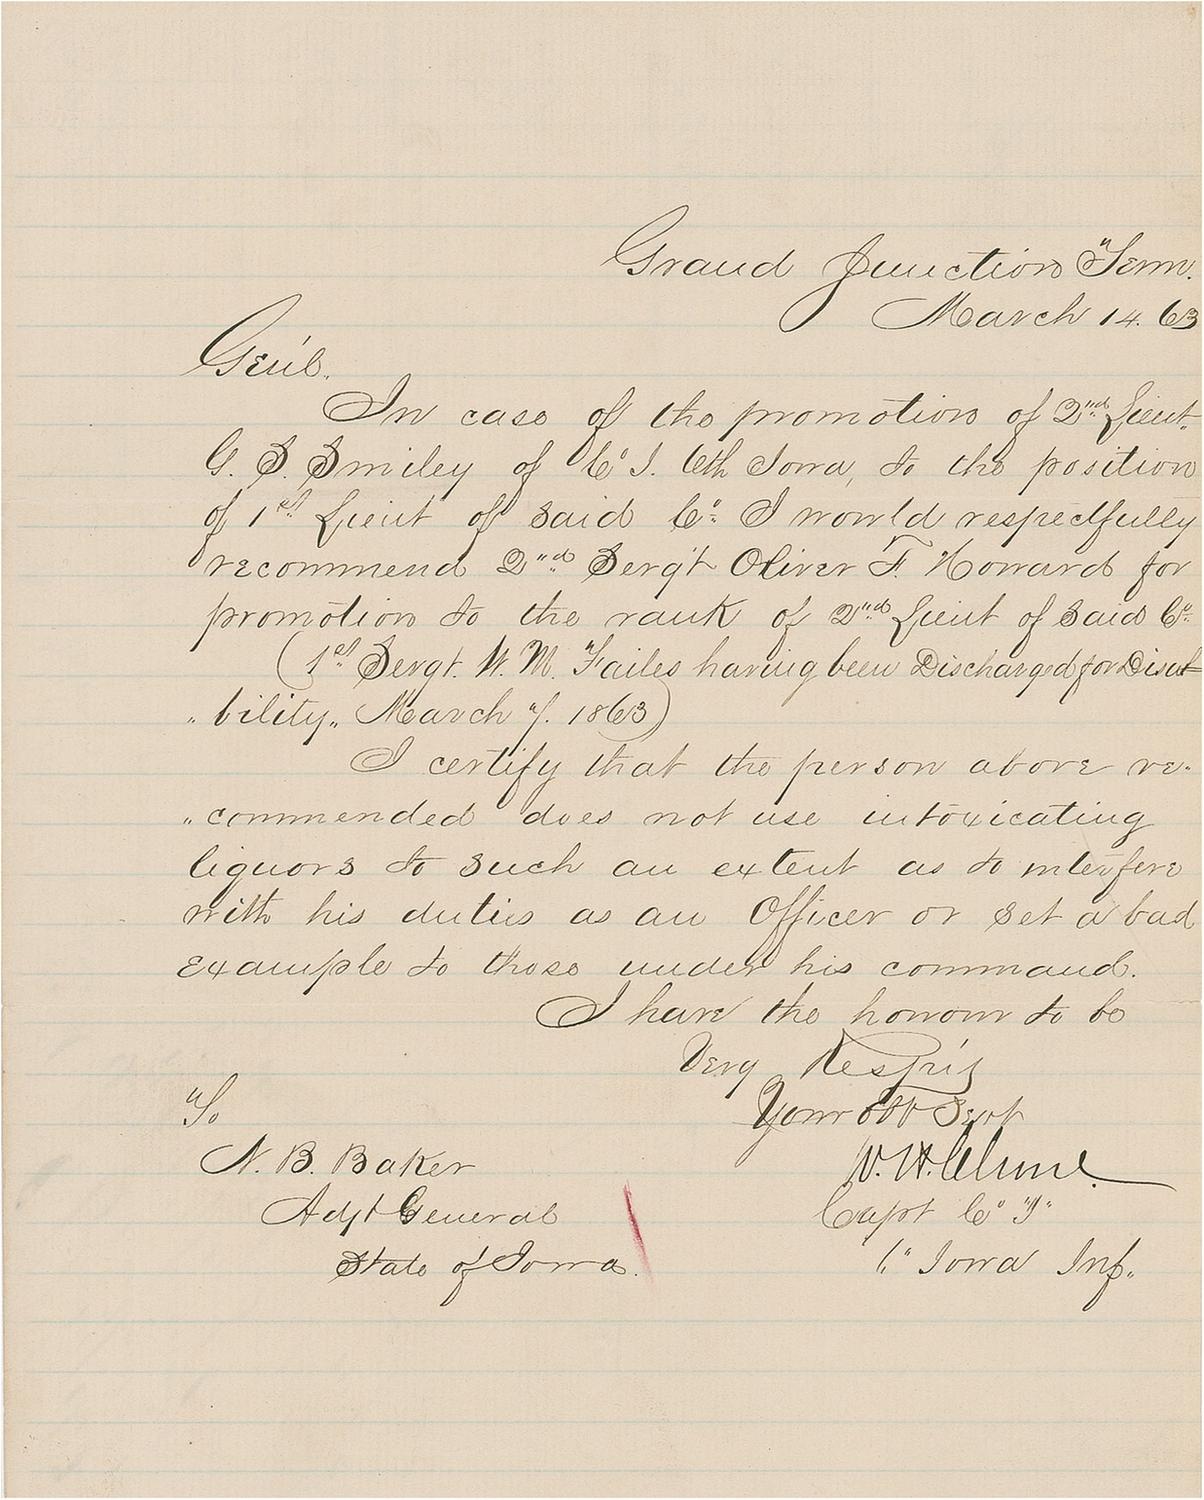 Grand Junction Tenn.
March 14. 63
Gen'l.
In case of the promotion of 2nd Lieut.
G. S. Smiley of Co I. 6th Iowa, to the position
of 1st Lieut of said Co. I would respectfully
recommend 2nd Sergt Oliver F. Howard for
promotion to the rank of 2nd Lieut of said Co.
(1st Sergt. W. M. Failes having been Discharged for Disa-
"bility" March 7. 1863)
I certify that the person above re-
"commended does not use intoxicating
liquors to such an extent as to interfere
with his duties as an Officer or set a bad
example to those under his command.
I have the honour to be
Very
Your Obt Servt
To
N. B. Baker
W. H. Clune.
Adjt General
Capt Co "I"
State of Iowa.
6" Iowa Inf.